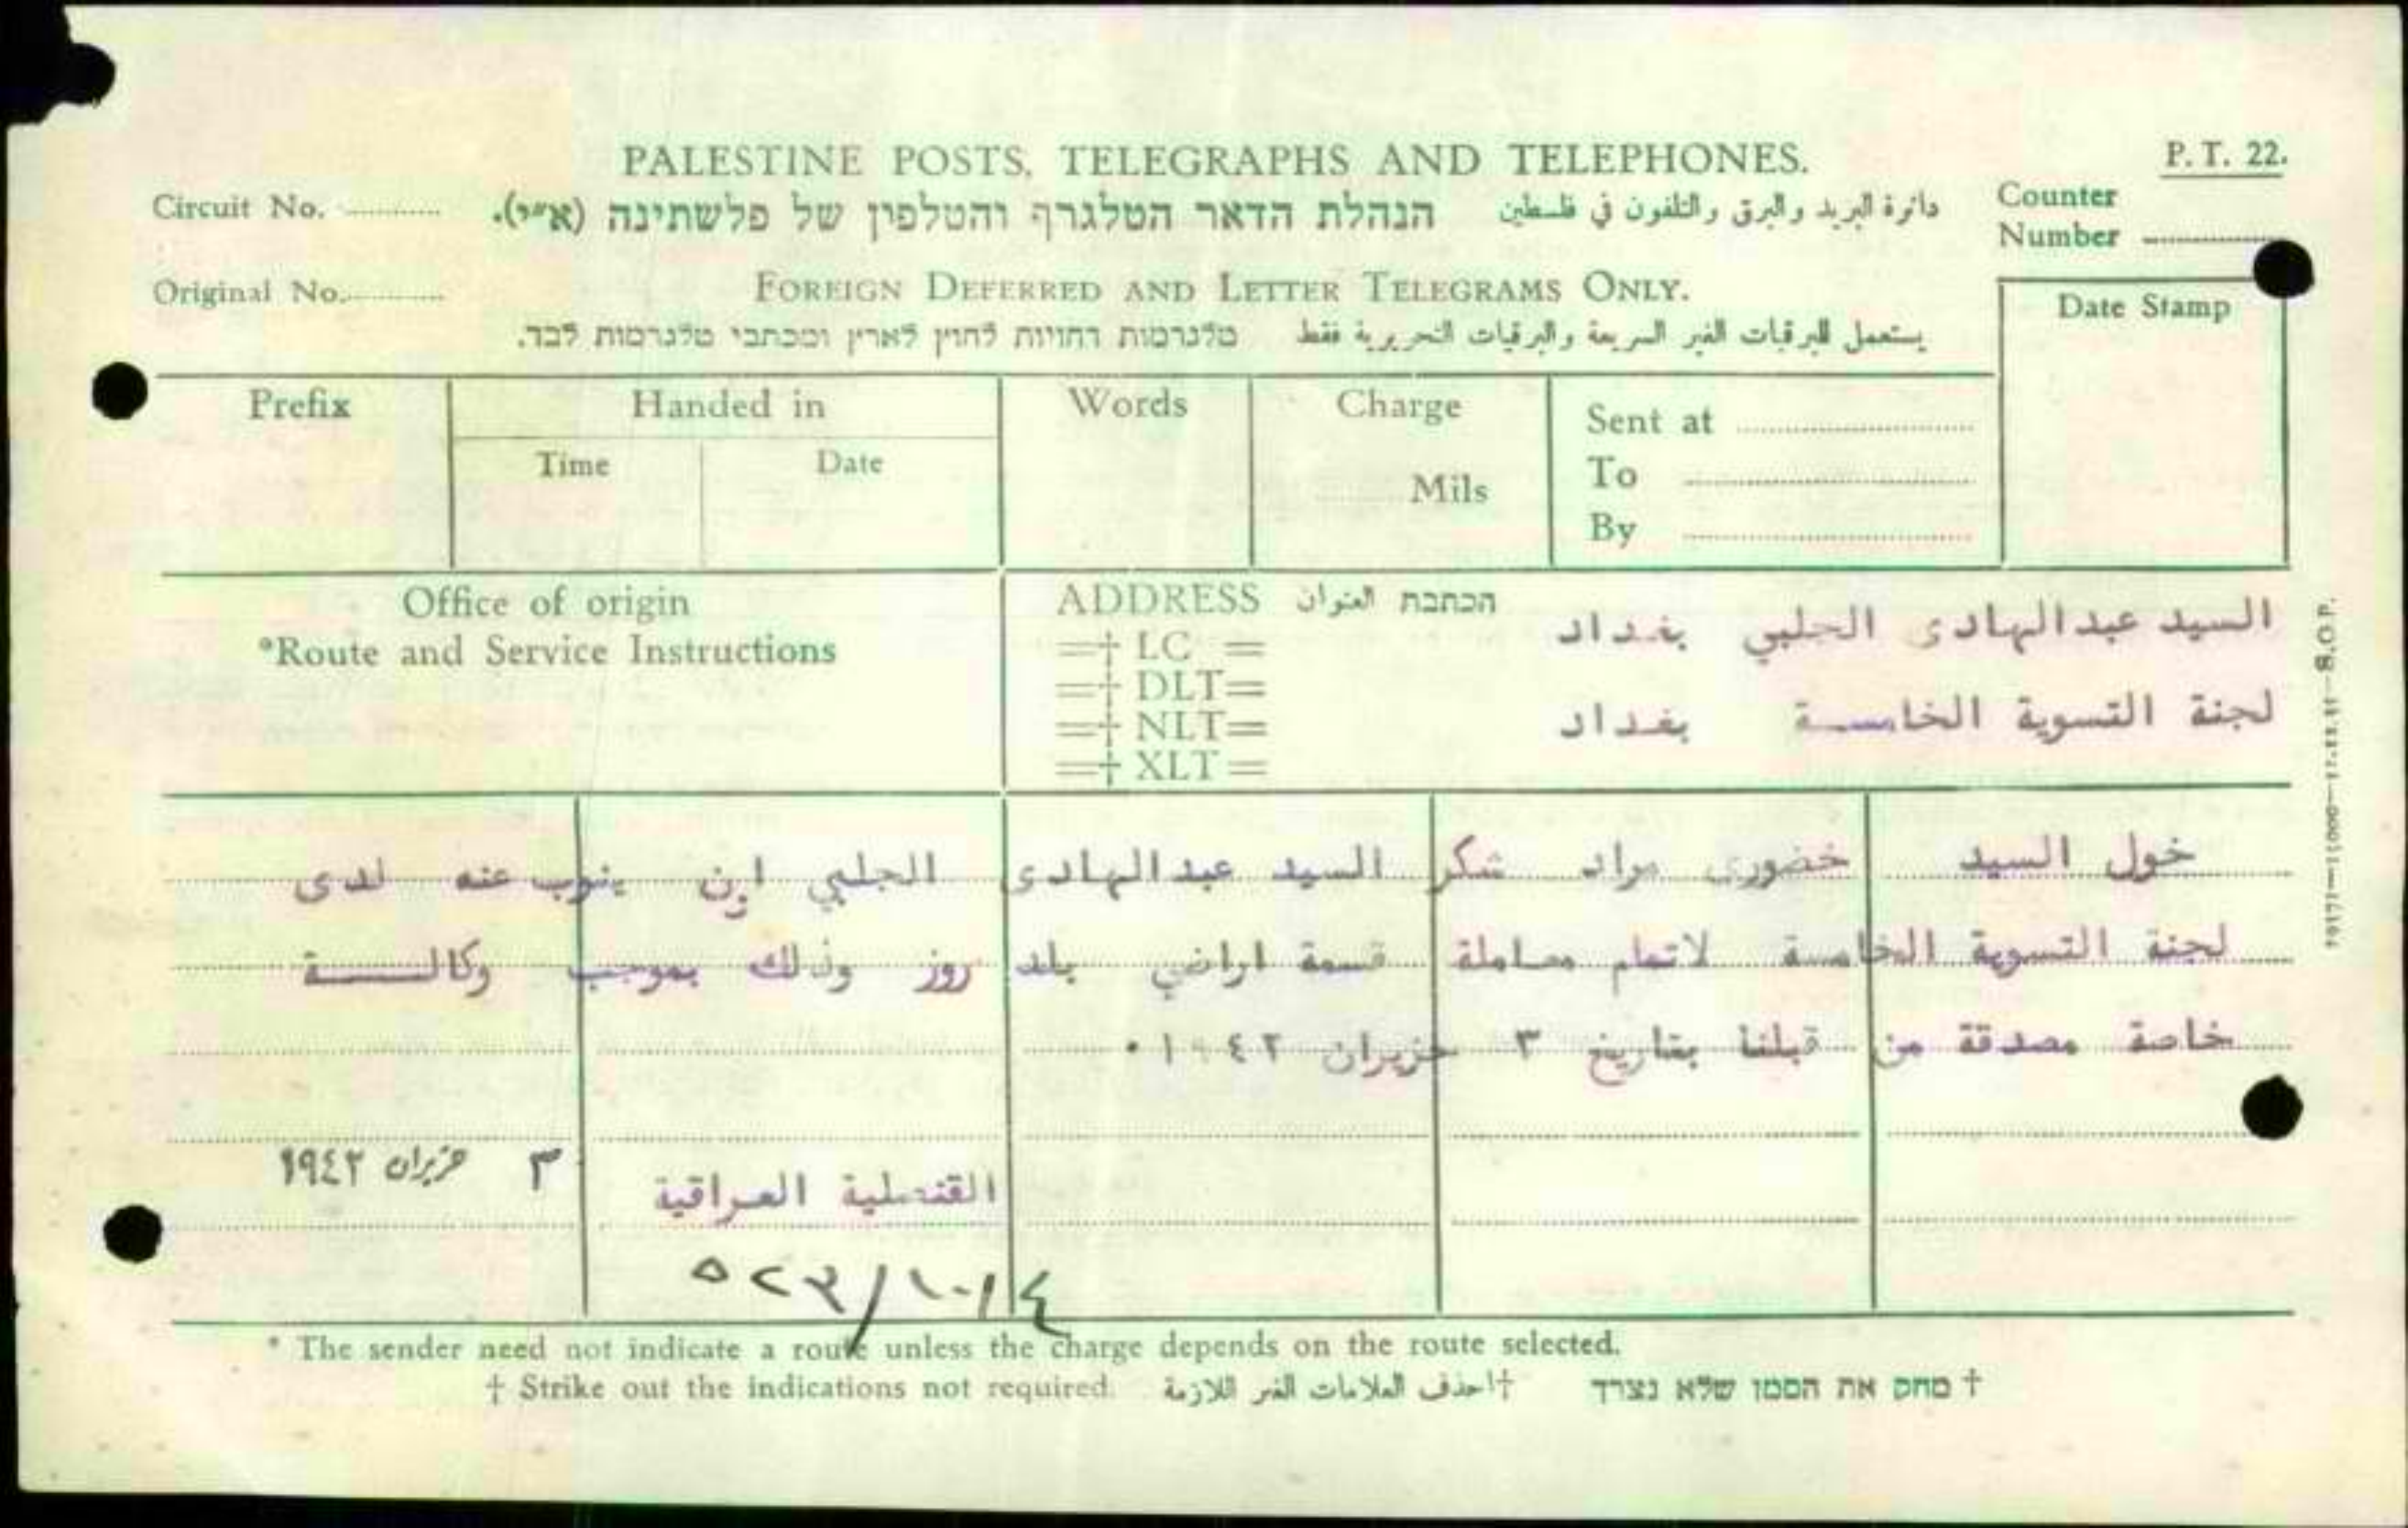 PALESTINE POSTS, TELEGRAPHS AND TELEPHONES.
P. T. 22.
Circuit No.
הנהלת הדאר הטלגרף והטלפון של פלשתינה (א״י).
دائرة البريد والبرق والتلفون في فلسطين
Counter Number
Original No.
FOREIGN DEFERRED AND LETTER TELEGRAMS ONLY.
טלגרמות דחויות לחוץ לארץ ומכתבי טלגרמות לבד.
يستعمل للبرقيات الغير السريعة والبرقيات التحريرية فقط
Date Stamp
Prefix
Handed in
Time
Date
Words
Charge
Mils
Sent at
To
By
Office of origin
*Route and Service Instructions
ADDRESS العنوان הכתבת
=† LC =
=† DLT=
=† NLT=
=† XLT=
السيد عبدالهادى الجلبي بغداد
لجنة التسوية الخامسة بغداد
خول السيد خضورى مراد شكر السيد عبدالهادى الجلبي ان ينوب عنه لدى
لجنة التسوية الخامسة لاتمام معاملة قسمة اراضي بلد روز وذلك بموجب وكالـــة
خاصة مصدقة من قبلنا بتاريخ ٣ حزيران
٣ حزيران ١٩٤٢
القنصلية العراقية
٥٢٣/١٠/٤
* The sender need not indicate a route unless the charge depends on the route selected.
† Strike out the indications not required.
†احذف العلامات الغير اللازمة
† מחק את הסמן שלא נצרך
S.O.P.